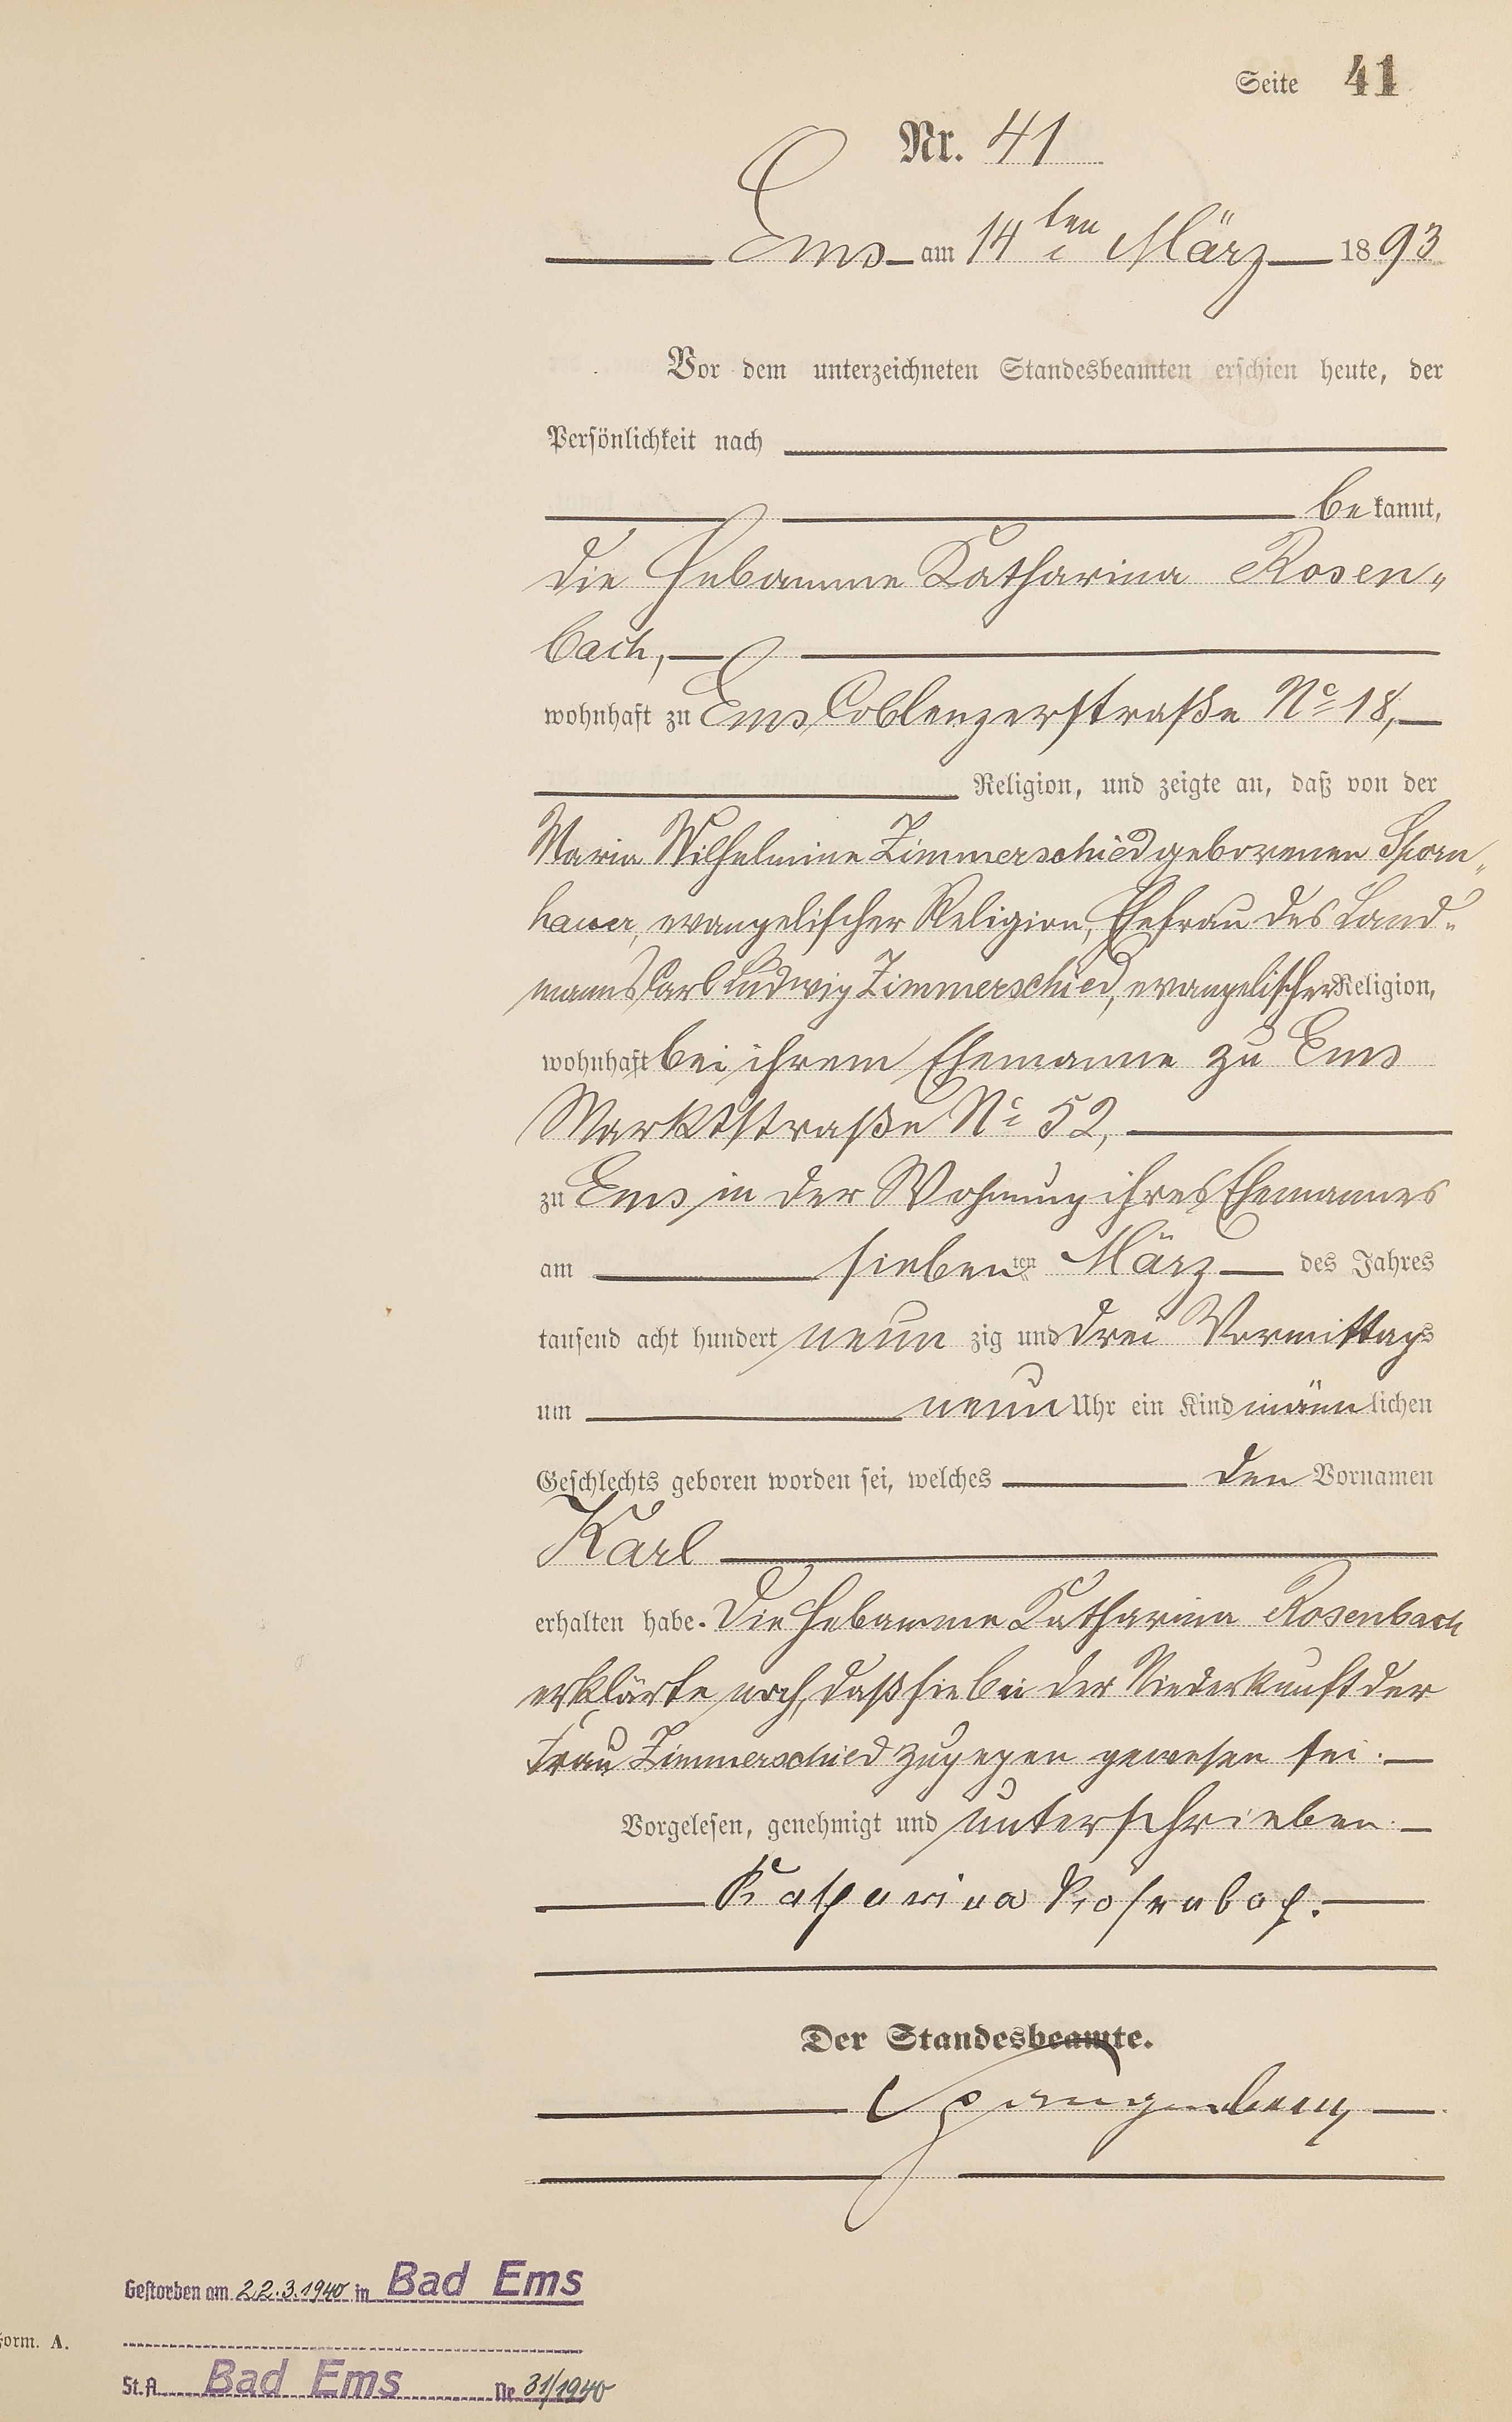 Seite 41
Nr. 41
Ems am 14ten März 1893
Vor dem unterzeichneten Standesbeamten erschien heute, der
Persönlichkeit nach
bekannt,
die Hebamme Katharina Rosen„
bach,
wohnhaft zu Ems, Coblenzerstraße No 18,
Religion, und zeigte an, daß von der
Maria Wilhelmine Zimmerschied geborenen Sporn„
hauer, evangelischer Religion, Ehefrau des Land„
manns Carl Ludwig Zimmerschied, evangelischer Religion,
wohnhaft bei ihrem Ehemanne zu Ems
Marktstraße No 52,
zu Ems in der Wohnung ihres Ehemannes
am siebenten März des Jahres
tausend acht hundert neunzig und drei Vormittags
um neun Uhr ein Kind männlichen
Geschlechts geboren worden sei, welches den Vornamen
Karl
erhalten habe. Die Hebamme Katharina Rosenbach
erklärte noch, daß sie bei der Niederkunft der
Frau Zimmerschied zugegen gewesen sei.
Vorgelesen, genehmigt und unterschrieben.
Katharina Rosenbach.
Der Standesbeamte.
Spangenberg
Gestorben am 22.3.1940 in Bad Ems
Form. A.
St.A. Bad Ems Nr 31/1940